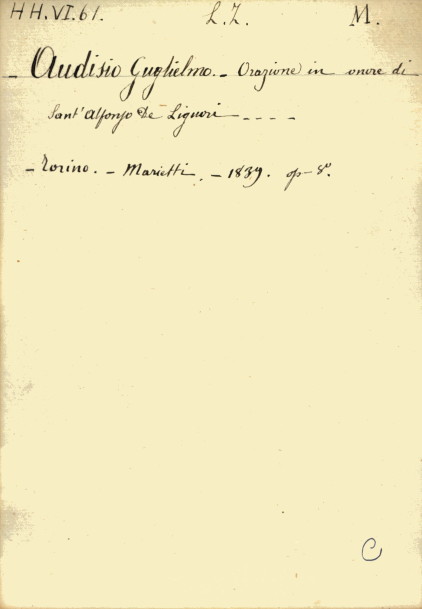 HH.VI.61. L.Z. M.
- Audisio Guglielmo. - Orazione in onore di
Sant'Alfonso De Liguori - - - -
- Torino. - Marietti. - 1839. op - 8º.
C